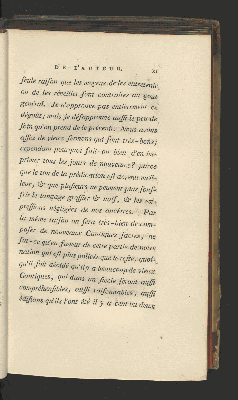 DE L'AUTEUR. xi
seule raison que les moyens de les entretenir
ou de les réveiller sont contraires au goût
général. Je n'approuve pas entiérement ce
dégoût; mais je désapprouve aussi le peu de
soin qu'on prend de le prévenir. Nous avons
assez de vieux sermons qui sont très-bons;
cependant pourquoi fait-on bien d'en im-
primer tous les jours de nouveaux? parce
que le ton de la prédication est devenu meil-
leur, & que plusieurs ne peuvent plus souf-
frir le langage grossier & naïf, & les ex-
pressions négligées de nos ancêtres. Par
la même raison on fera très-bien de com-
poser de nouveaux Cantiques sacrés, ne
fût-ce qu'en faveur de cette partie de notre
nation qui est plus policée que le reste, quoi-
qu'il soit décidé qu'il y a beaucoup de vieux
Cantiques, qui dans un siecle seront aussi
compréhensibles, aussi raisonnables, aussi
édifians qu'ils l'ont été il y a cent ou deux